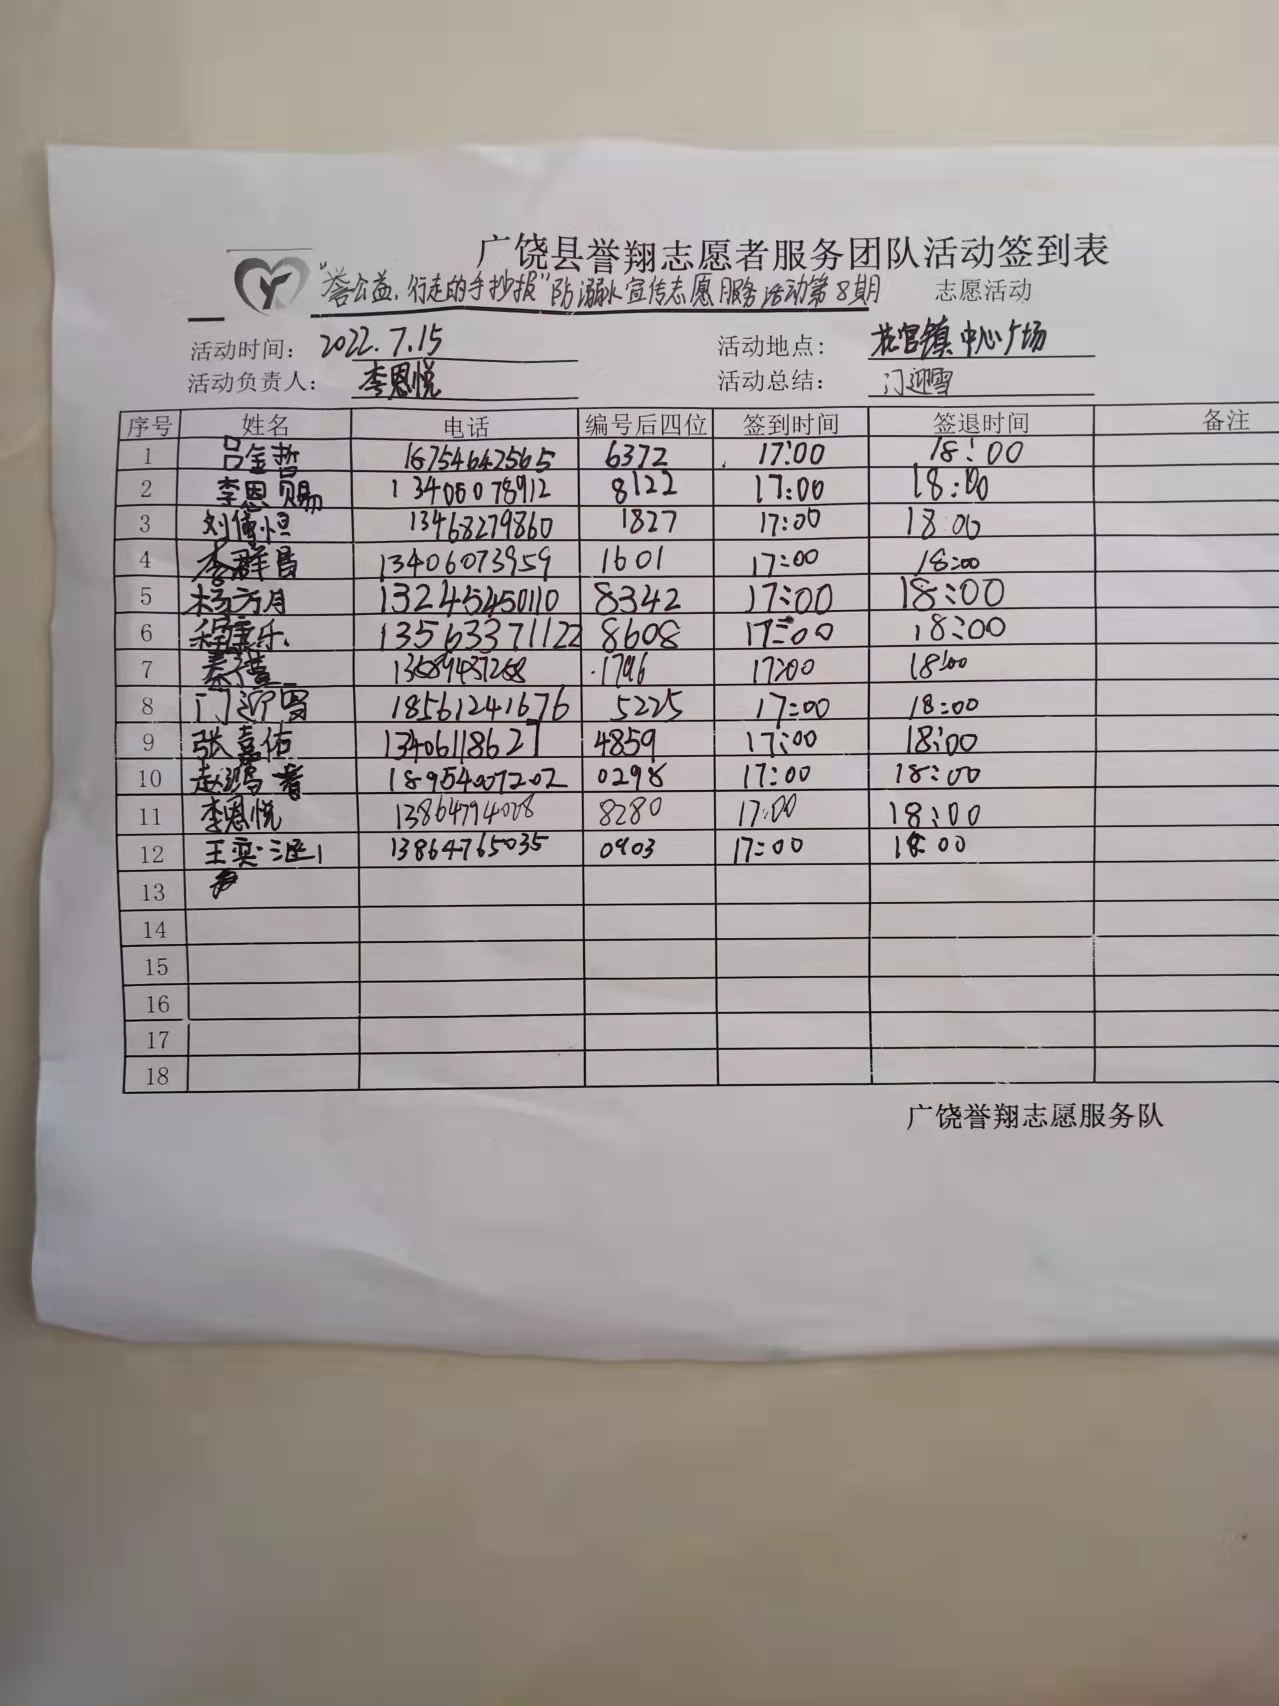 广饶县誉翔志愿者服务团队活动签到表
"誉公益、行走的手抄报"防溺水宣传志愿服务活动第8期 志愿活动
活动时间： 2022.7.15 活动地点： 花官镇中心广场
活动负责人： 李恩悦 活动总结： 门迎雪
序号 姓名 电话 编号后四位 签到时间 签退时间 备注
1 吕金哲 16754647565 6372 17:00 18:00
2 李恩赐 13406078912 8122 17:00 18:00
3 刘 恒 13468279860 1827 17:00 18:00
4 李群昌 13406073959 1601 17:00 18:00
5 杨方月 13245450110 8342 17:00 18:00
6 程 乐 13563371122 8608 17:00 18:00
7 秦 1796 17:00 18:00
8 门迎雪 18561241676 5225 17:00 18:00
9 张嘉佑 13406118627 4859 17:00 18:00
10 赵鸿 18954007202 0298 17:00 18:00
11 李恩悦 13864794008 8280 17:00 18:00
12 王奕 13864765035 0903 17:00 18:00
13
14
15
16
17
18
广饶誉翔志愿服务队